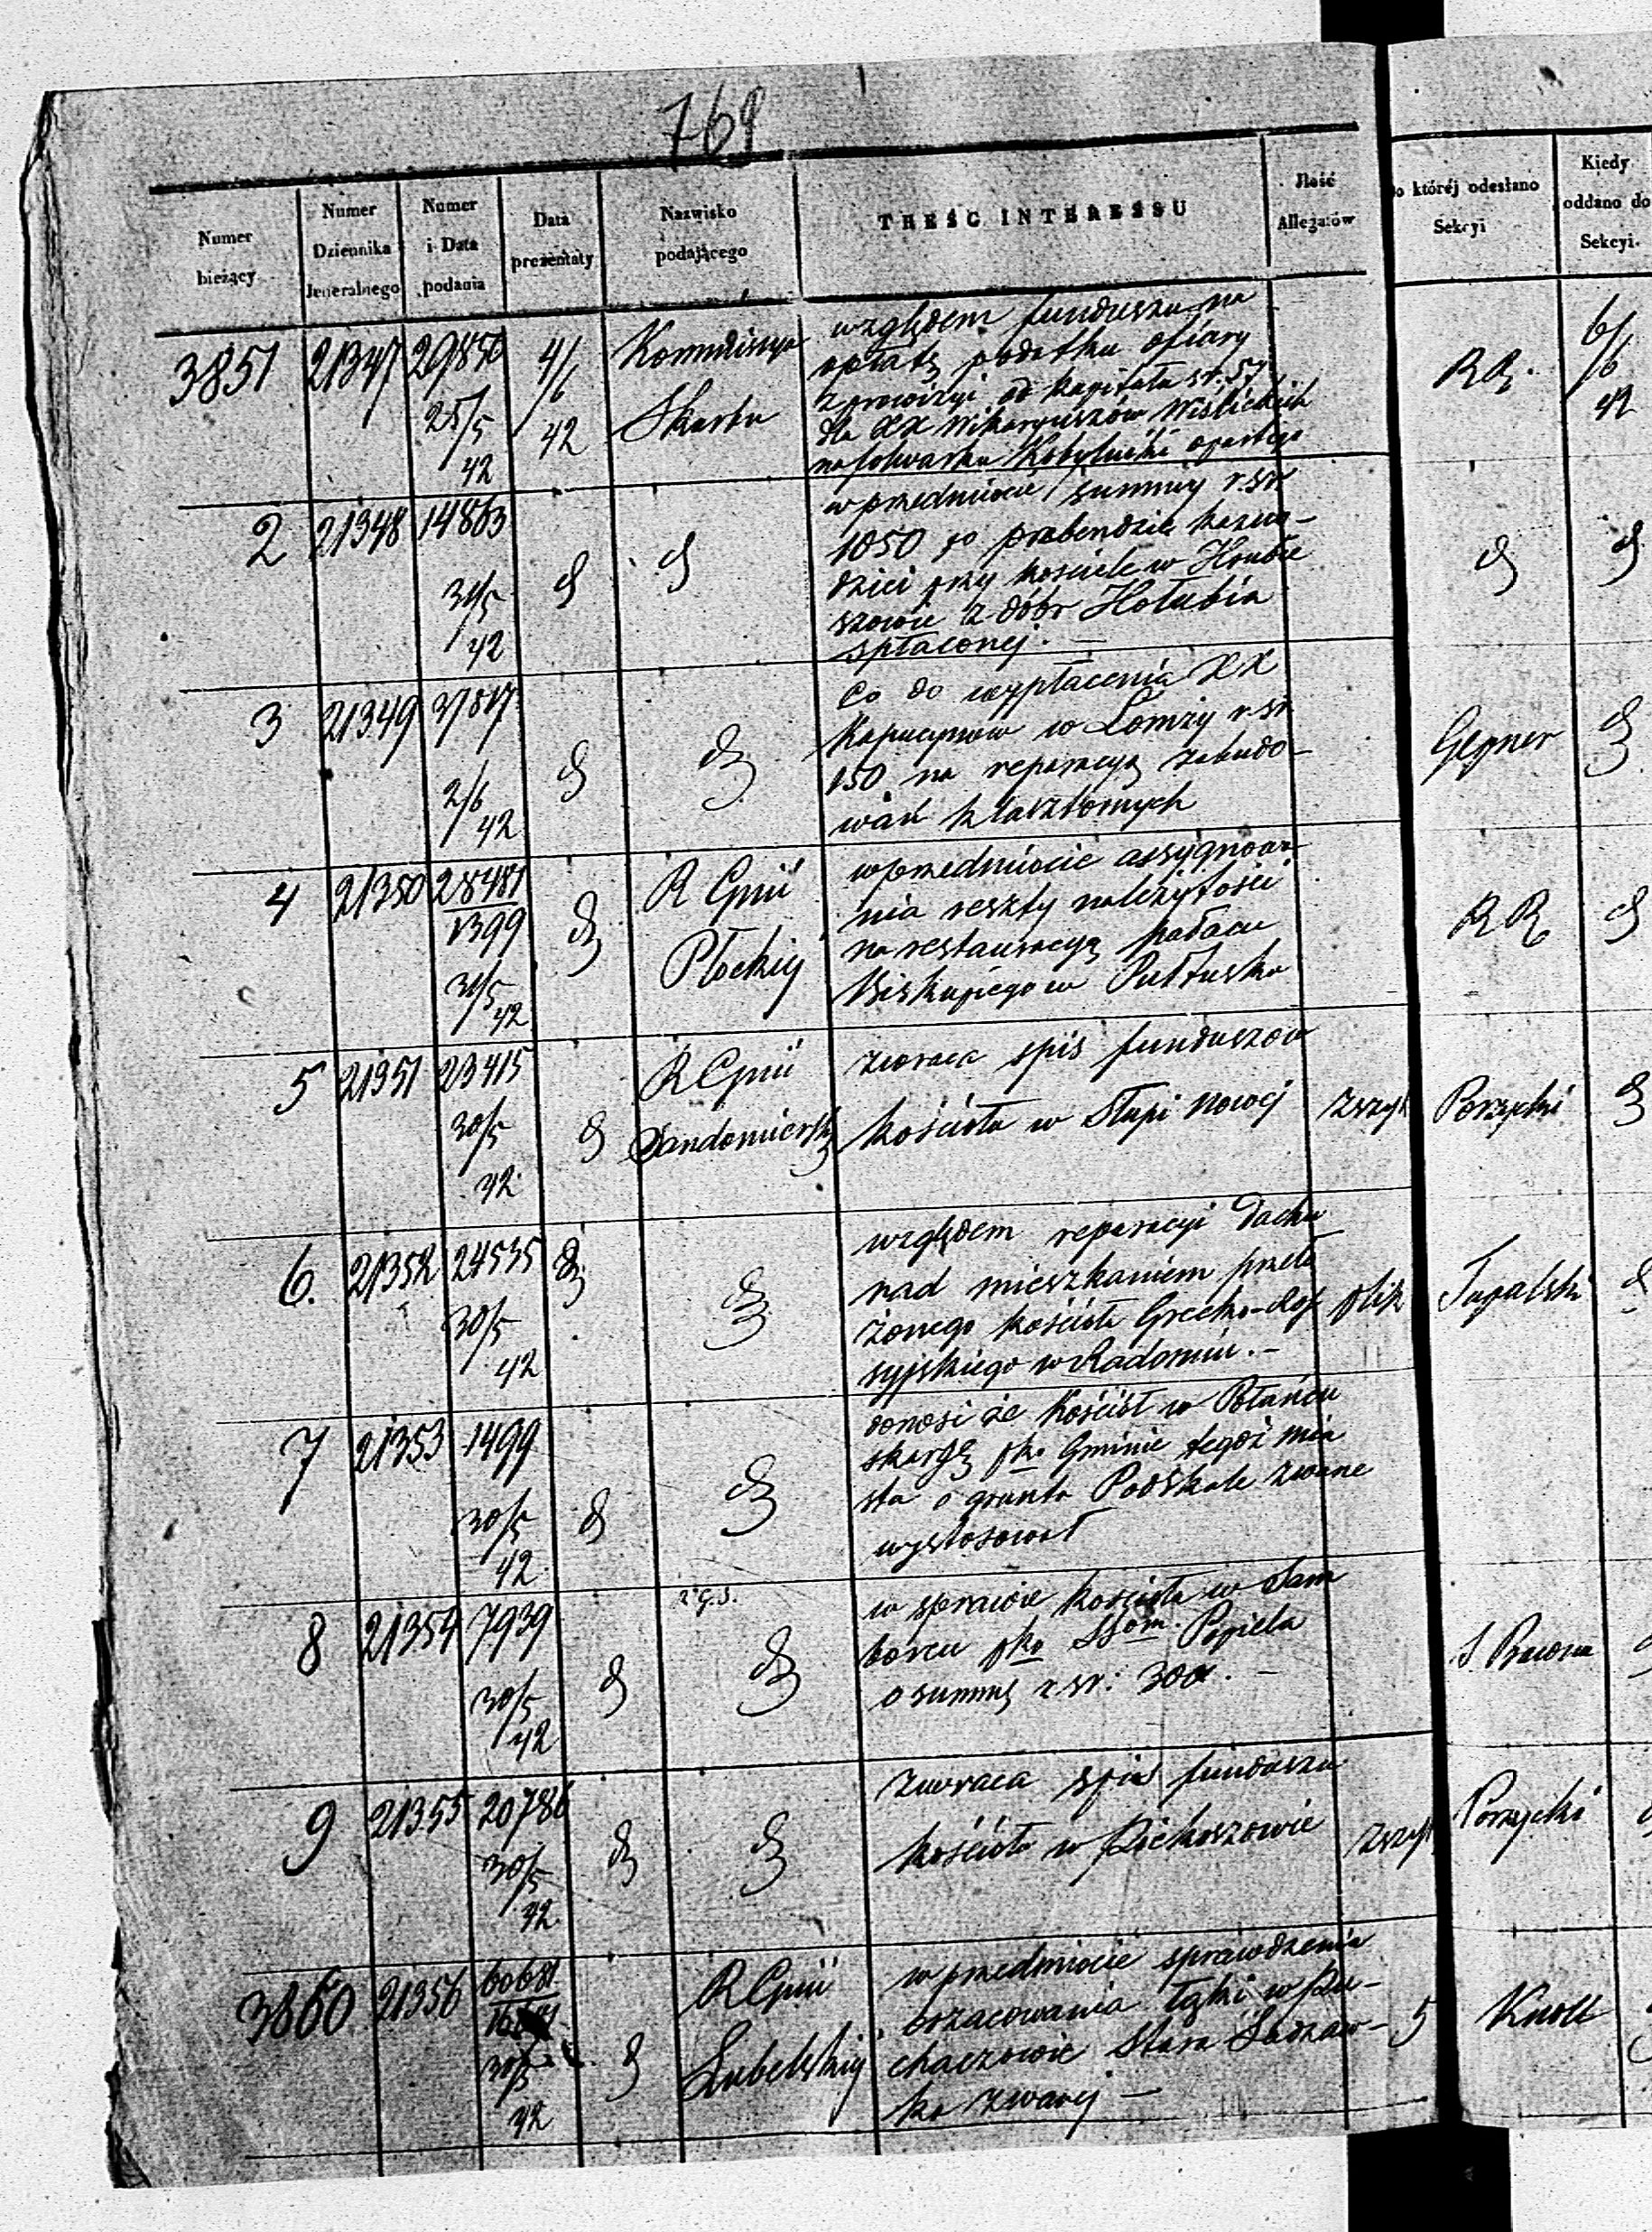 769
Numer bieżący
Numer Dziennika Jeneralnego
Numer i Data podania
Data prezentaty
Nazwisko podającego
TREŚĆ INTERESSU
Ilość Allegatów
do któréj odesłano Sekcyi
Kiedy oddano do Sekcyi.
3851 21347 29850 25/5 42 4/6 42
Kommissya Skarbu
względem funduszu na
opłatę podatku ofiary
z prowizyi od kapitału
dla XX Wikaryuszów Wiślickich
na folwarku opartego
RR. 6/6 42
2 21348 14863 31/5 42
w przedmiocie summy r.sr.
1050 po prebendzie kazno-
dziei przy kościele w Hrubie
szowie z dóbr Hołubia
spłaconej. —
3 21349 2/6 42
Co do wypłacenia XX
Kapucynów w Łomży r.sr.
150 na reparacyą zabudo-
wań klasztornych
Gepner
4 21350 28481 1399 31/5 42
R Gnii
Płockiej
w przedmiocie assygnowa-
nia reszty należytości
na restauracyą pałacu
Biskupiego w Pułtusku
RR
5 21351 23415 30/5 42
R Gnii
Sandomiersk
zwraca spis funduszów
kościoła w Słupi Nowej
zszyt
Porzycki
6. 21352 24535 30/5 42
względem reparacyi dachu
nad mieszkaniem przeło
żonego kościoła Grecko-Ros
syjskiego w Radomiu. —
plik
7 21353 1499 30/5 42
donosi że kościół w Połańcu
skargę pko Gminie tegoż mia
sta o grunta Podskale zwane
wystosował
8 21354 7939 30/5 42
w sprawie kościoła w Sam
borcu pko SSom. Popiela
o summę r sr: 300. —
9 21355 20786 30/5 42
zwraca spis funduszu
kościoła w Piekoszowie
zszyt
Porzycki
3860 21356 60681 30/5 42
R Gnii
Lubelskiej
w przedmiocie sprawdzenia
oszacowania łąki w Pu-
chaczowie Stara Sadzaw-
ka zwanej —
5
Knoll